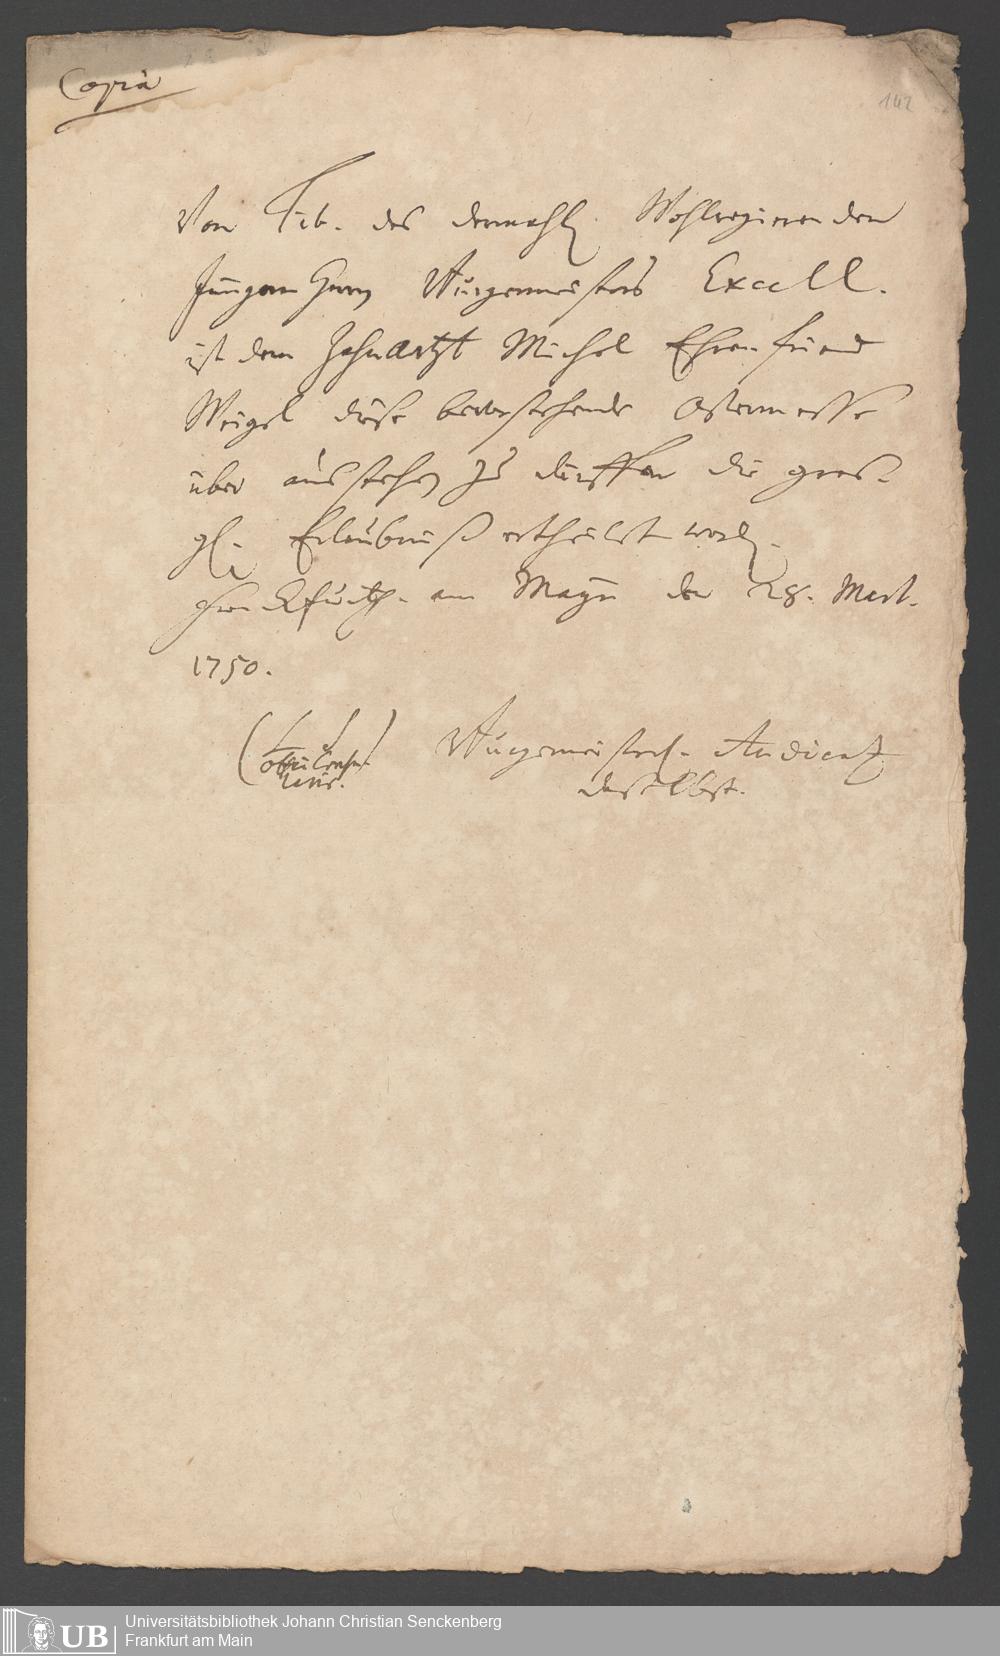 Copia
142
Von Tit. des dermahl. Wohlregierenden
Jüngern Herrn Burgermeisters Excell.
ist dem Zahnartzt Michel Ehrenfried
Weigel diese bevorstehende Ostermesse
über ausstehen zu dürffen die gros-
gl. Erlaubniß ertheilet word.
Franckfurth am Mayn den 28. Mart.
1750.
(L S) Burgermeisterl. Audientz
daselbst.
Universitätsbibliothek Johann Christian Senckenberg
Frankfurt am Main
UB